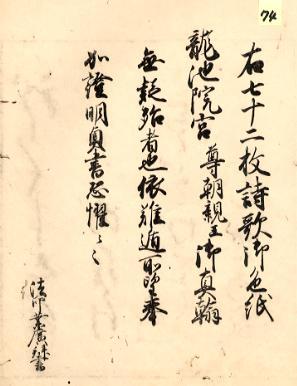 74
右七十二枚詩歌御色紙
龍池院宮尊朝親王御真翰
無疑殆者也依難遁所望奉
加證明奥書恐懼々々